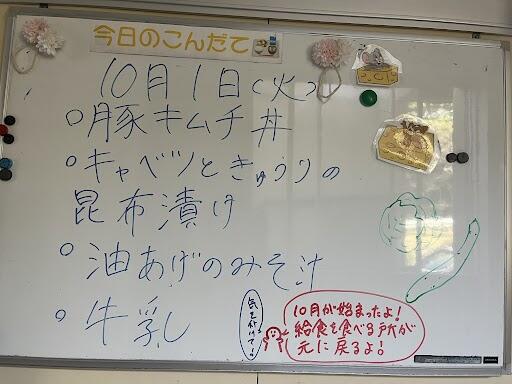 今日のこんだて
10月1日(火)
○豚キムチ丼
○キャベツときゅうりの
昆布漬け
○油あげのみそ汁
○牛乳
気を付けて!
10月が始まったよ!
給食を食べる所が
元に戻るよ!